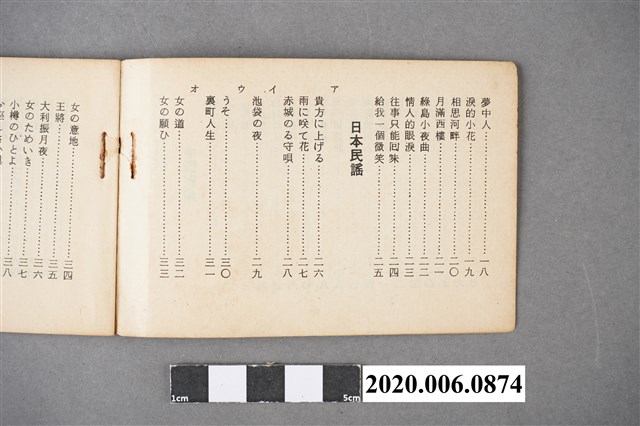 夢中人……一八
淚的小花……一九
相思河畔……二〇
月滿西樓……二一
綠島小夜曲……二二
情人的眼淚……二三
往事只能回味……二四
給我一個微笑……二五
日本民謠
ア
貴方に上げる……二六
雨に咲て花……二七
赤城のる守唄……二八
イ
池袋の夜……二九
ウ
うそ……三〇
裏町人生……三一
オ
女の道……三二
女の願ひ……三三
女の意地……三四
王將……三五
大利振月夜……三六
女のためいき……三七
小樽のひとよ……三八
1cm
5cm
2020.006.0874